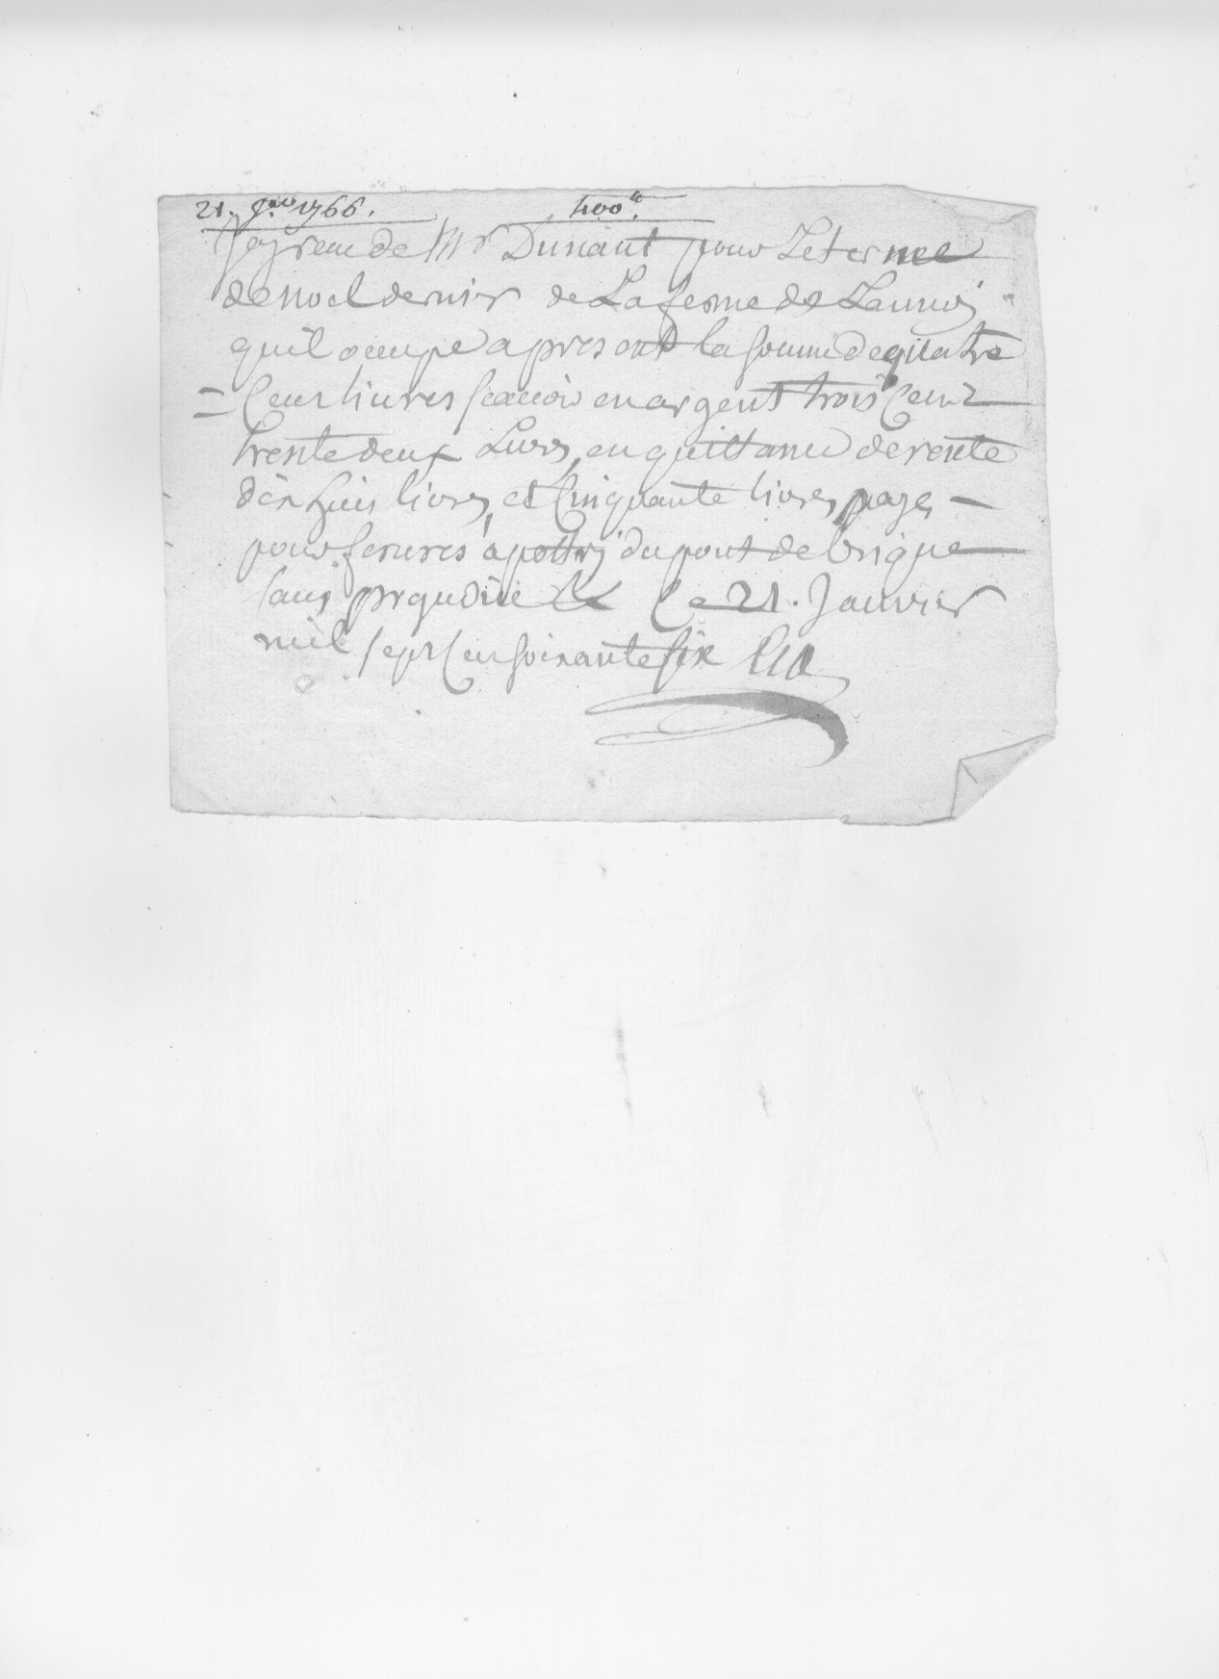 21. Jer 1766. 400#.
J'ay receu de Mr Dunant pour Leterme
de noel dernier de La ferme de Launoy
quil occupe apresent la somme de quatre
Cens livres scavoir en argent trois Cent
trente deux Livres, en quittance de rente
dix huit livres, et Cinquante livres payes
pour ferures a du pont de brique
sans prejudice Ce 21. Janvier
mil sept Cen soixante six